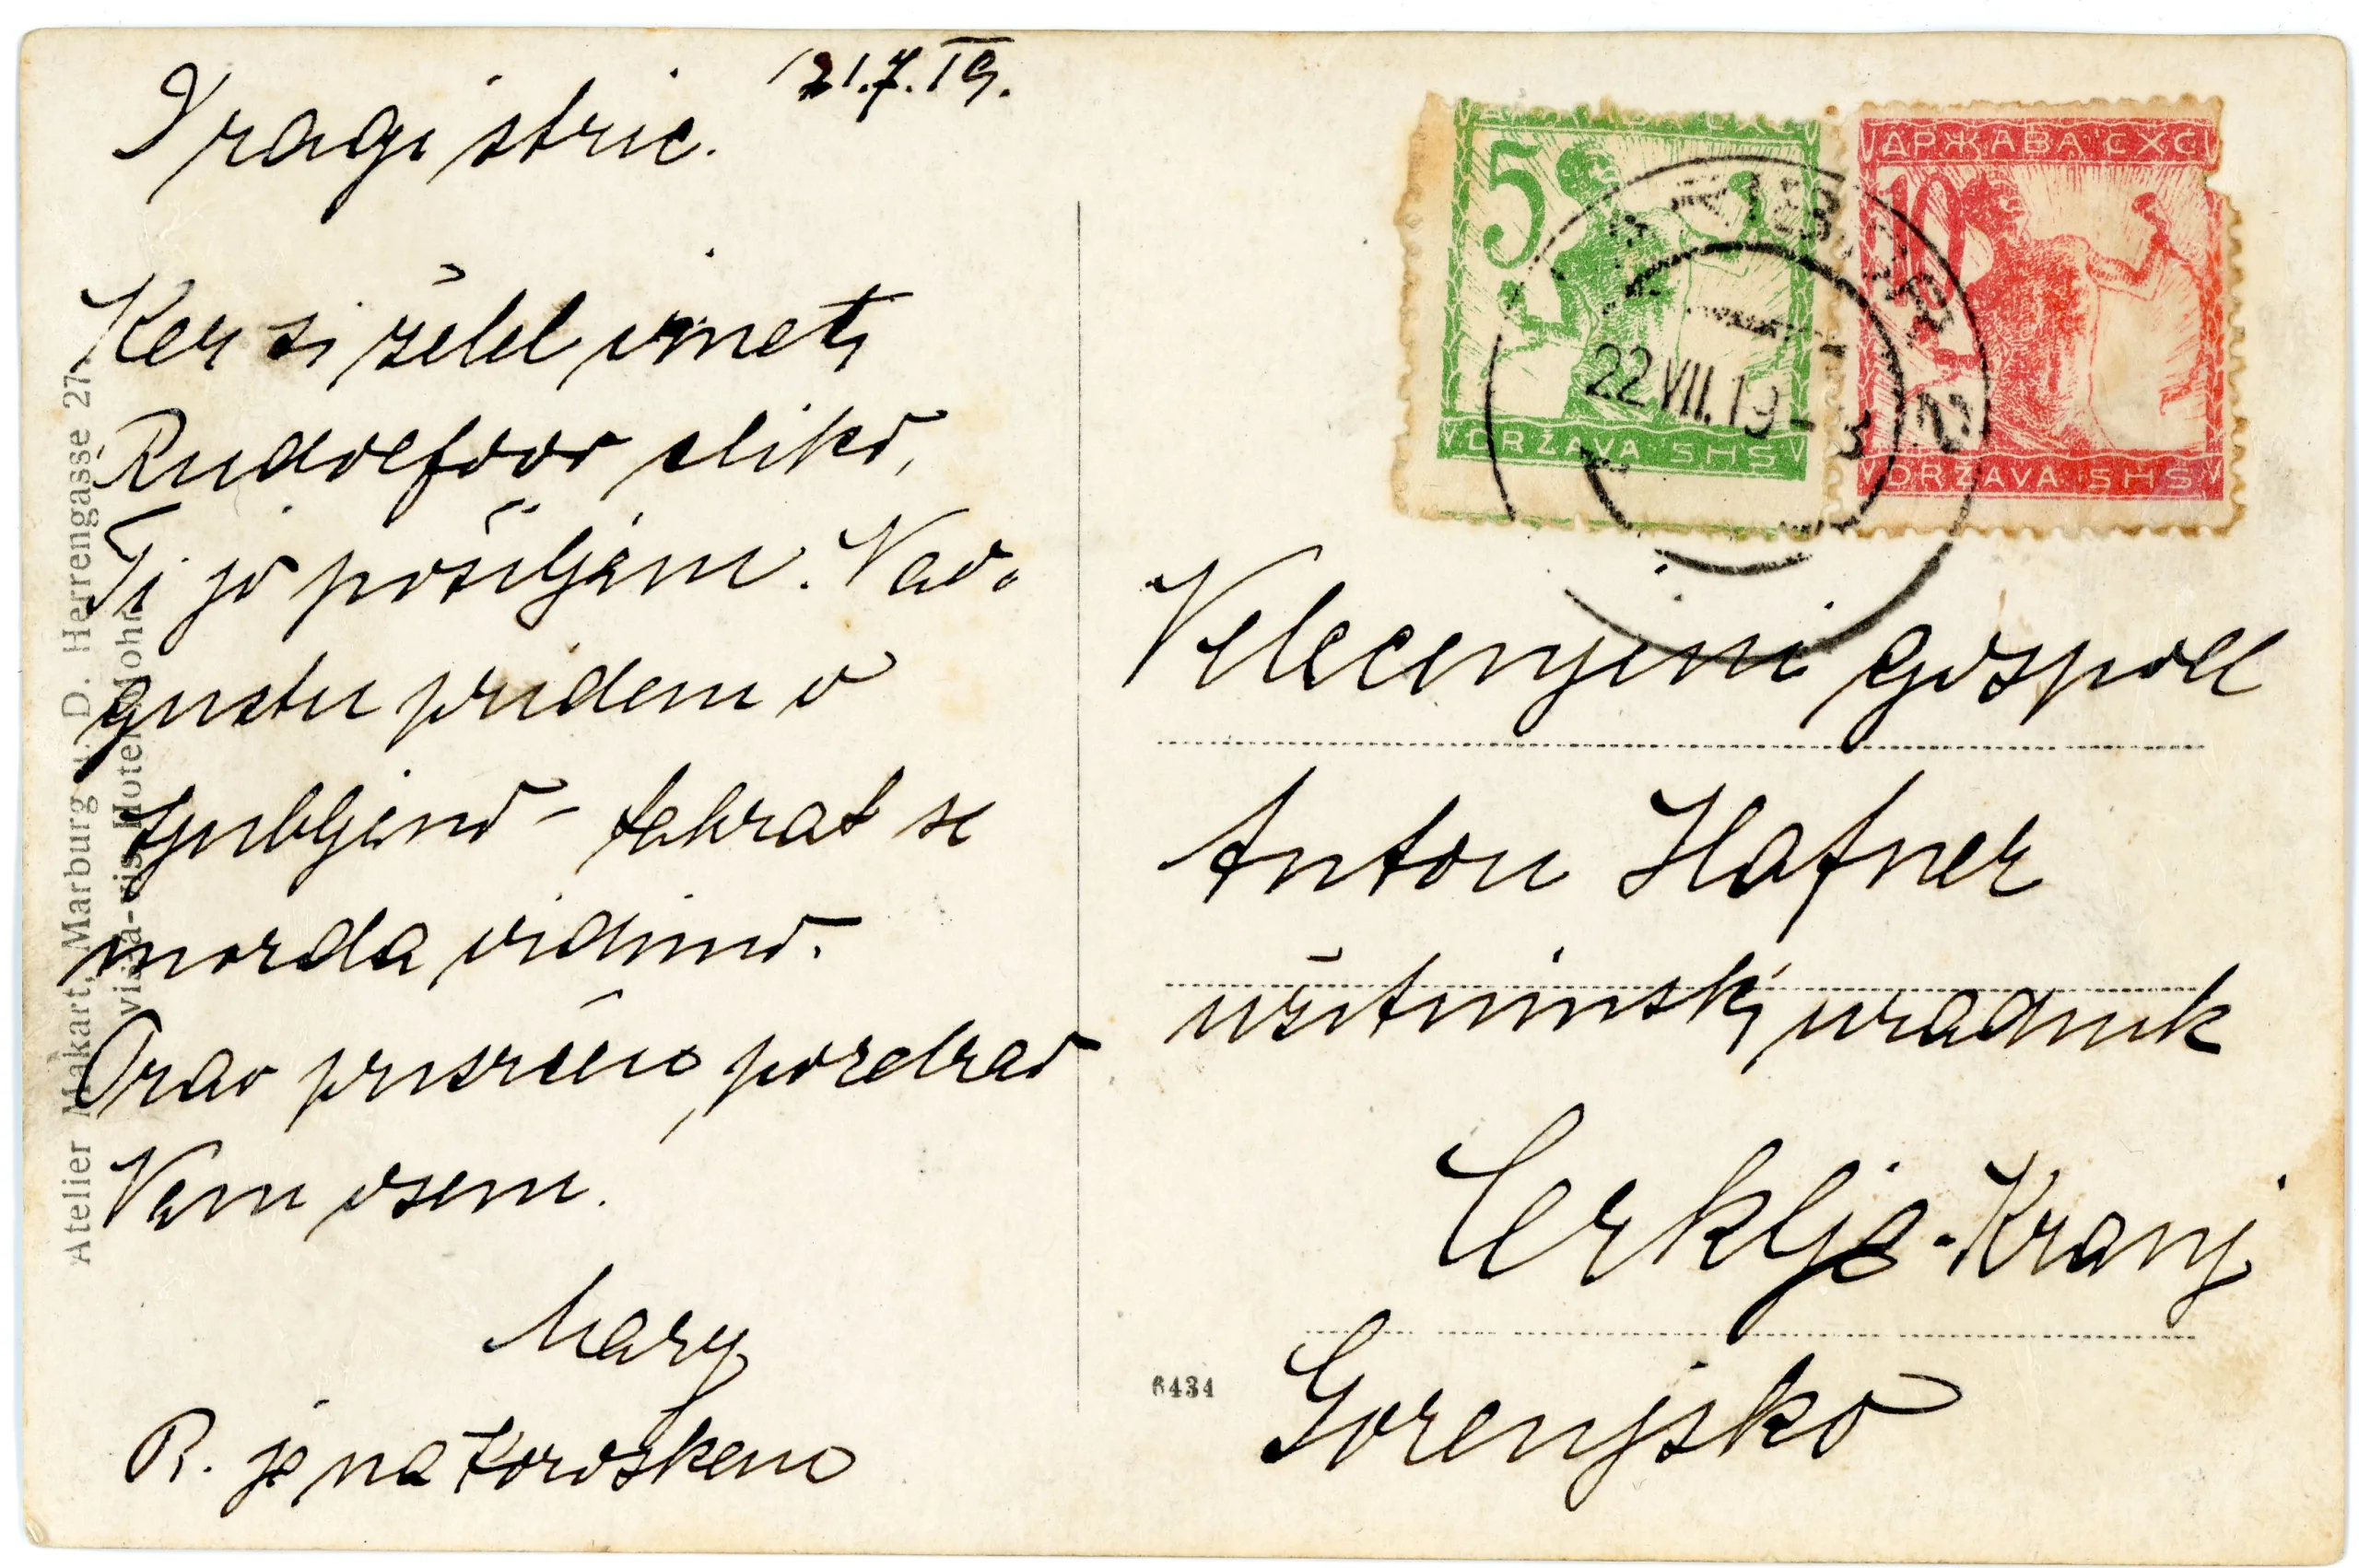 21.7.19.
Dragi stric.
Ker si želel imeti
Rudolfovo sliko,
Ti jo pošiljam. V av-
gustu pridem v
Ljubljano - takrat se
morda vidimo.
Prav prisrčno pozdrav
Vam vsem.
Mary
R. je na Koroškem
Atelier Makart, Marburg a. D. Herrengasse 27
vis-à-vis Hotel Mohr
5
DRŽAVA SHS
ДРЖАВА СХС
10
DRŽAVA SHS
22 VII. 19 - 3
Velecenjeni gospod
Anton Hafner
užitninski uradnik
Cerklje - Kranj
Gorenjsko
6434